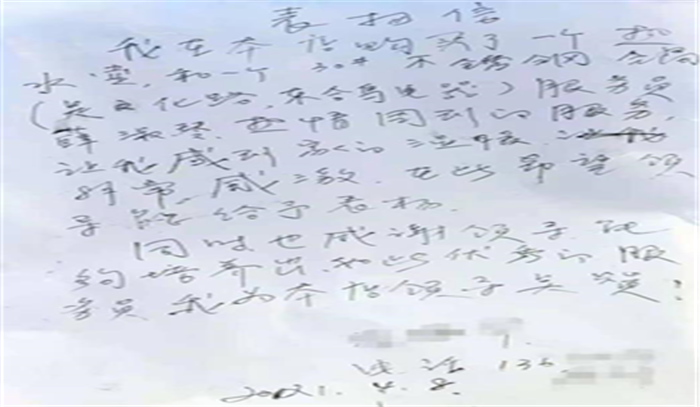 表扬信
我在本店购买了一个热
水壶,和一个304不锈钢 合锅
(吴文化路,东合马电器)服务员
薛淑琴.热情周到的服务,
让我感到家的温暖.
非常感激.在此希望领
导能给予表扬.
同时也感谢领导能
够培养出如此优秀的服
务员 我为本店领导点赞!
电话 136
2021.4.8.